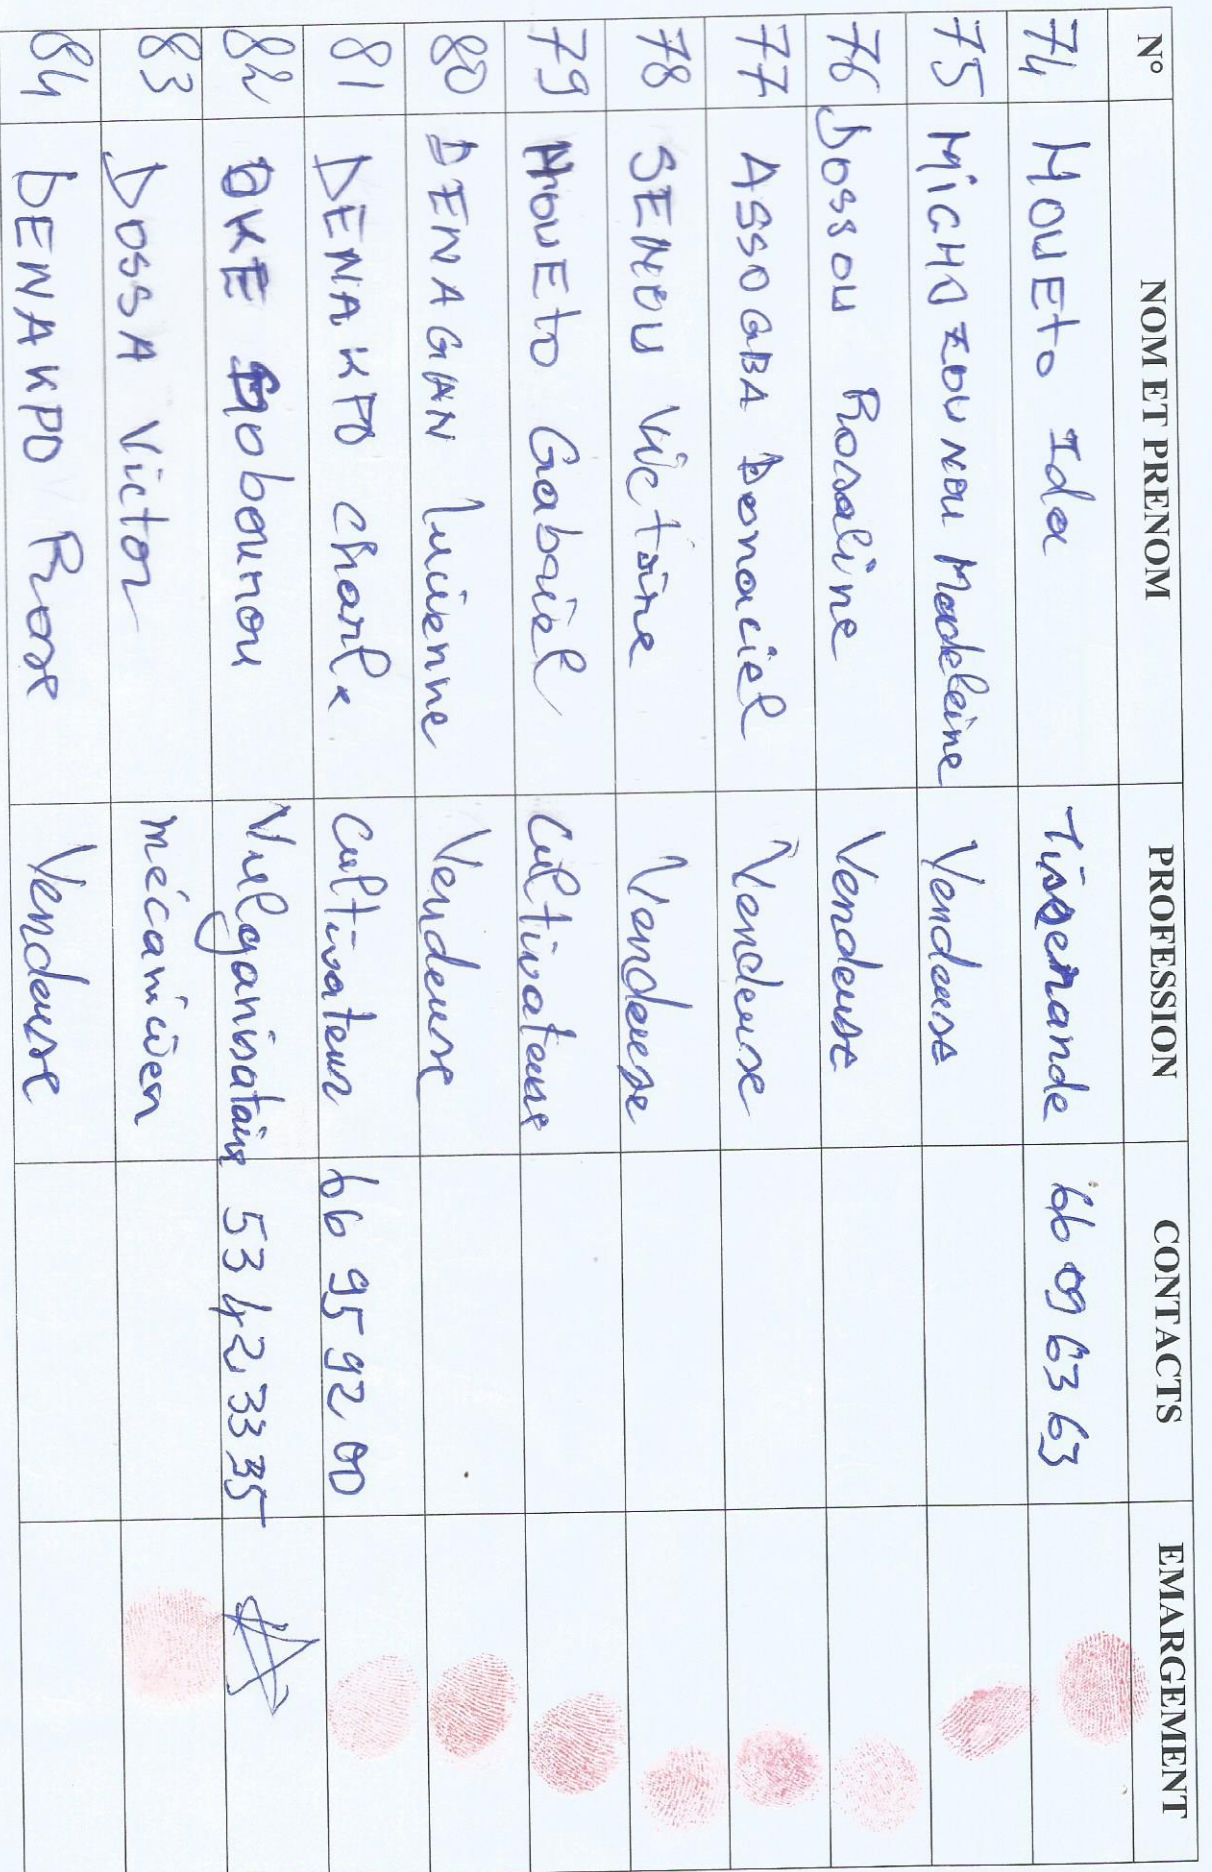 N° NOM ET PRENOM PROFESSION CONTACTS EMARGEMENT
74 HOUETO Ida Tisserande 66 09 63 63
75 MIGHOZOUNOU Madeleine Vendeuse
76 Dossou Rosaline Vendeuse
77 ASSOGBA Donaciel Vendeuse
78 SENOU Victoire Vendeuse
79 HOUETO Gabriel Cultivateur
80 DENAGAN Lucienne Vendeuse
81 DENAKPO Charle Cultivateur 66 95 92 00
82 OKE Gobounou Vulgarisateur 53 42 33 35
83 DOSSA Victor mécanicien
84 DENAKPO Rose Vendeuse